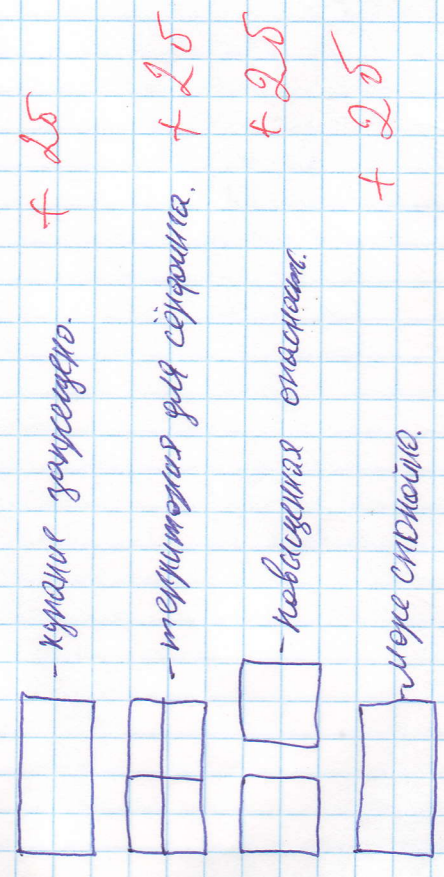 - купание запрещено. + 2б
- территория для сёрфинга. + 2б
- повышенная опасность. + 2б
- море спокойно. + 2б